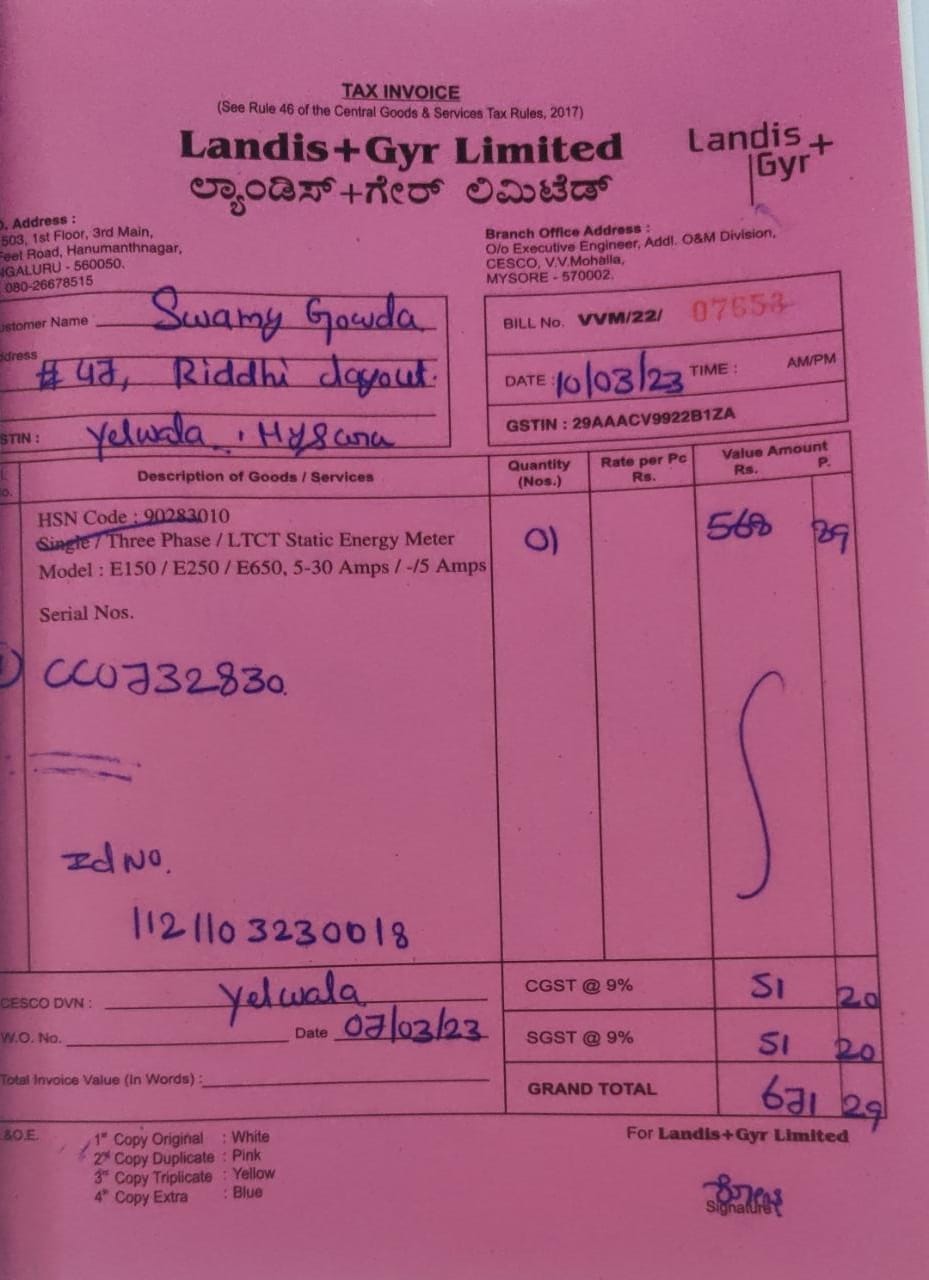 TAX INVOICE
(See Rule 46 of the Central Goods & Services Tax Rules, 2017)
Landis+Gyr Limited
Landis+
Gyr
ಲ್ಯಾಂಡಿಸ್+ಗೇರ್ ಲಿಮಿಟೆಡ್
. Address :
503, 1st Floor, 3rd Main,
Feet Road, Hanumanthnagar,
NGALURU - 560050.
080-26678515
Branch Office Address :
O/o Executive Engineer, Addl. O&M Division,
CESCO, V.V.Mohalla,
MYSORE - 570002.
ustomer Name Swamy Gowda
ddress
# 47, Riddhi Layout.
STIN : Yelwala, Mysuru
BILL No. VVM/22/ 07653
DATE : 10/03/23 TIME : AM/PM
GSTIN : 29AAACV9922B1ZA
Description of Goods / Services
Quantity (Nos.)
Rate per Pc Rs.
Value Amount Rs. P.
HSN Code : 90283010
Single / Three Phase / LTCT Static Energy Meter 01 568 89
Model : E150 / E250 / E650, 5-30 Amps / -/5 Amps
Serial Nos.
CC0732830.
Id No.
1121103230018
CESCO DVN : Yelwala
W.O. No. Date 07/03/23
Total Invoice Value (In Words) :
CGST @ 9% 51 20
SGST @ 9% 51 20
GRAND TOTAL 671 29
&O.E.
1st Copy Original : White
2nd Copy Duplicate : Pink
3rd Copy Triplicate : Yellow
4th Copy Extra : Blue
For Landis+Gyr Limited
Signature